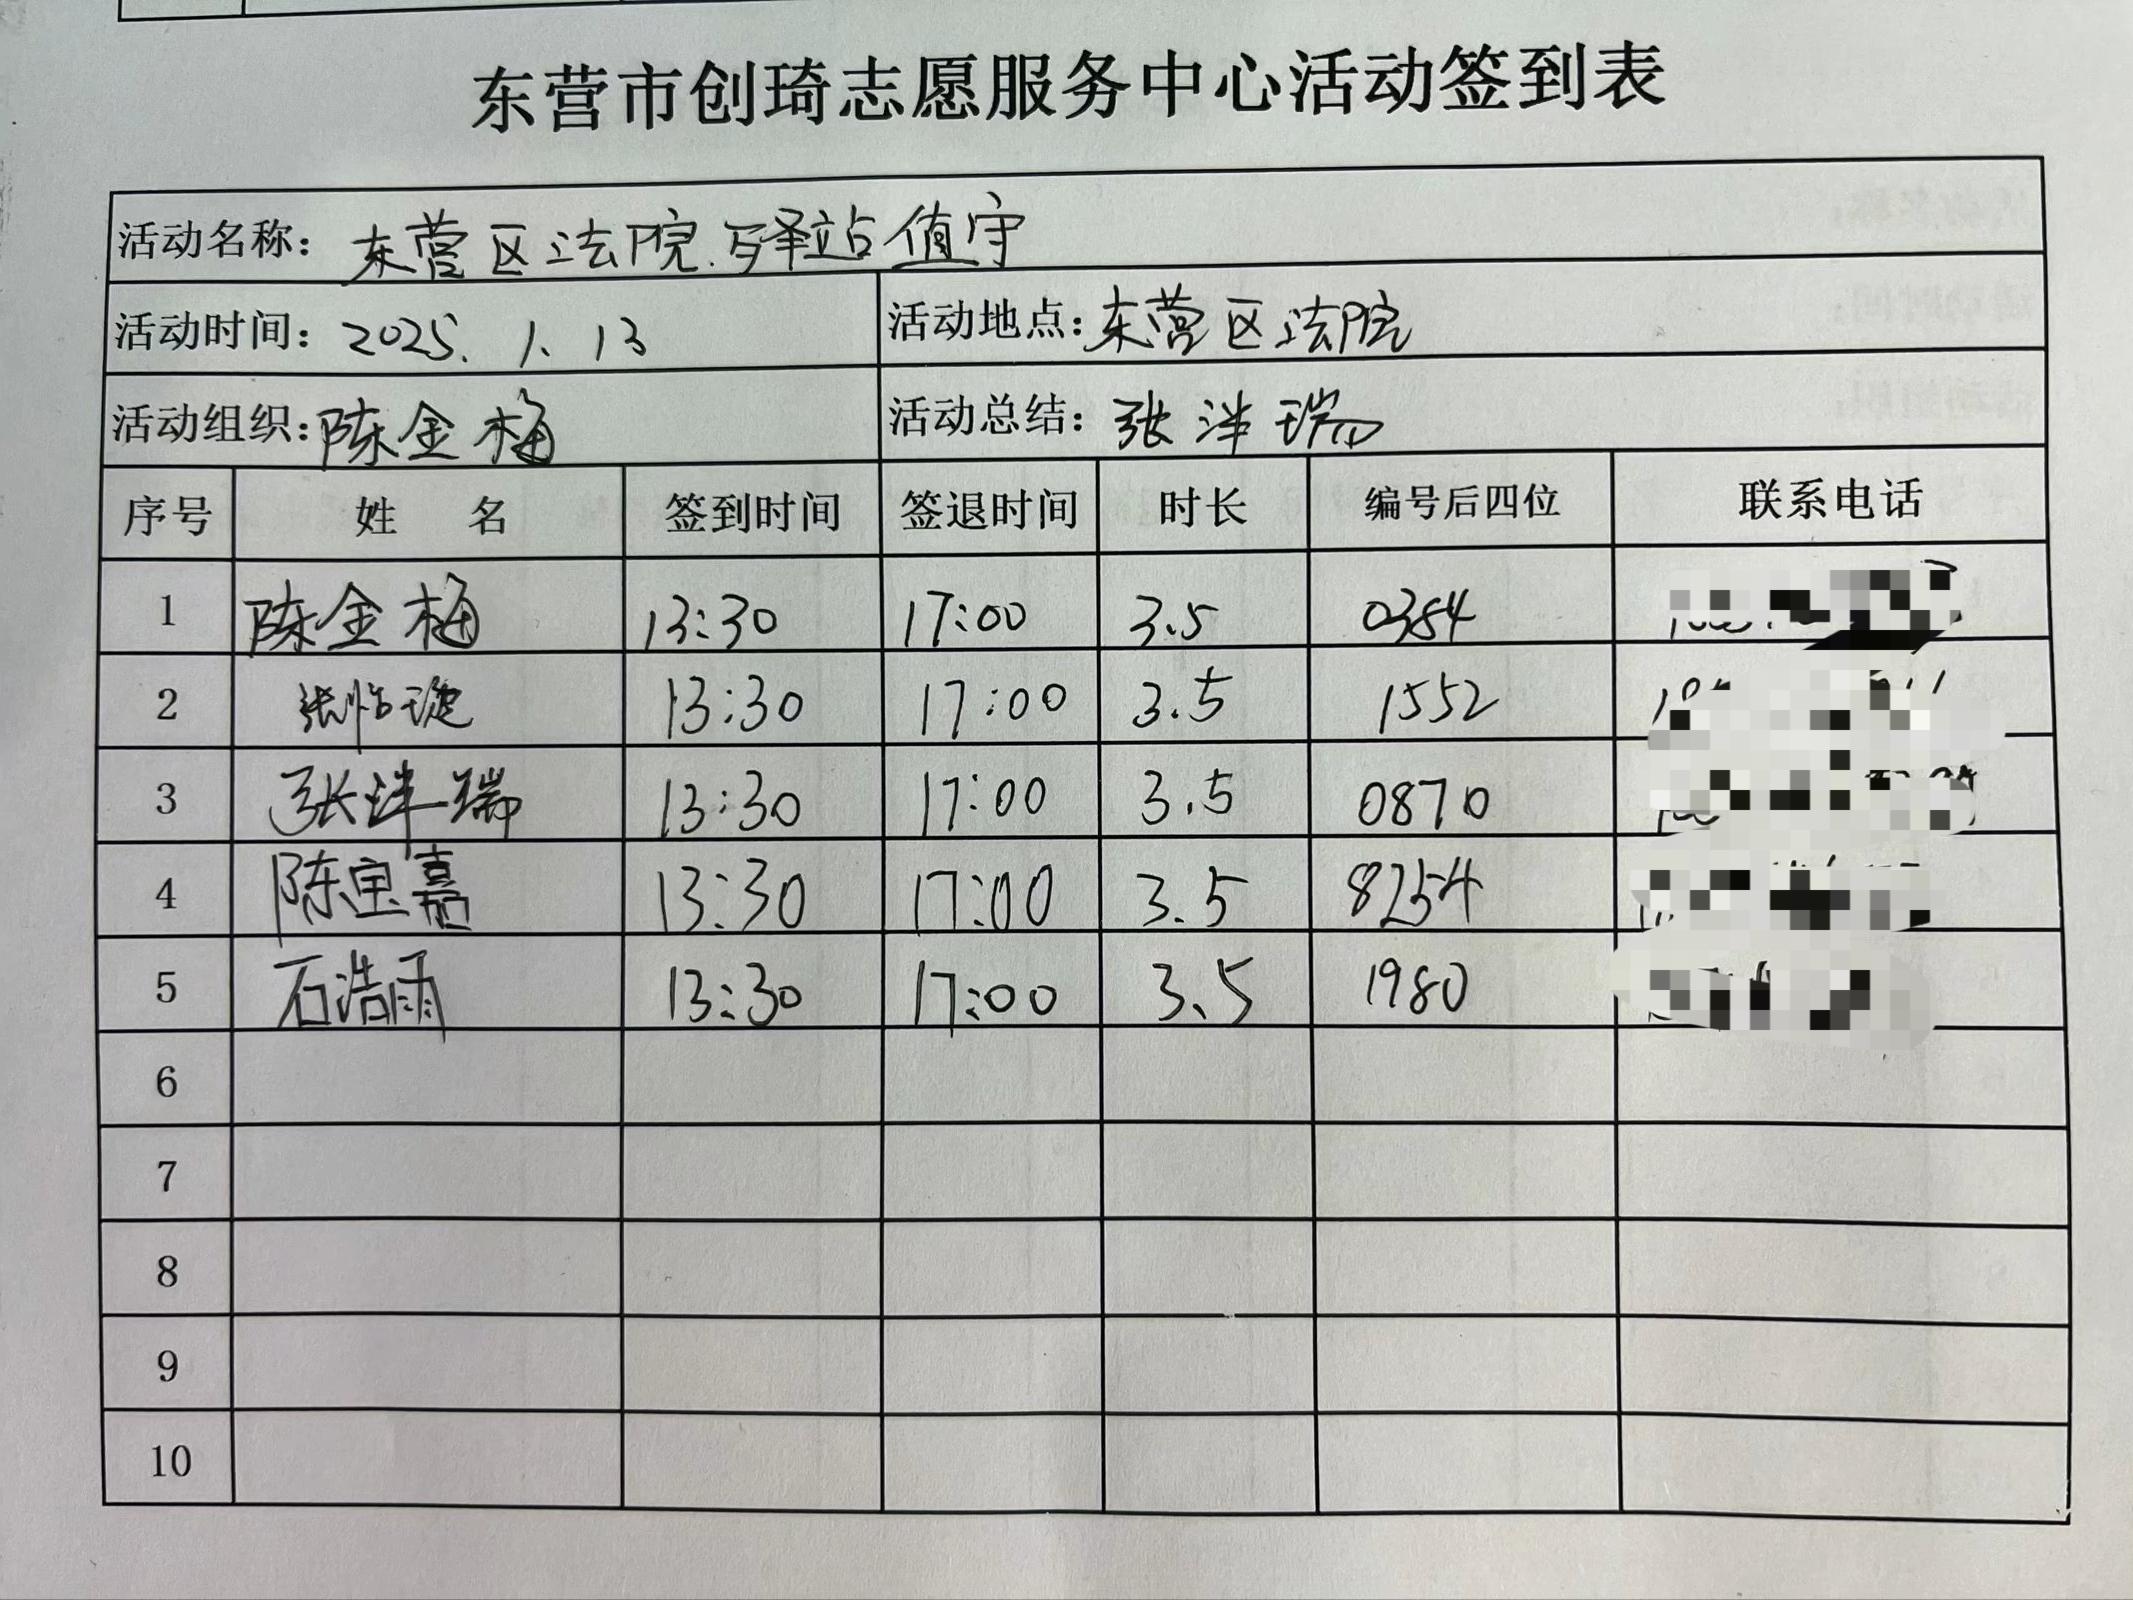 东营市创琦志愿服务中心活动签到表
活动名称: 东营区法院驿站值守
活动时间: 2025.1.13 活动地点: 东营区法院
活动组织: 陈金梅 活动总结: 张洋瑞
序号 姓 名 签到时间 签退时间 时长 编号后四位 联系电话
1 陈金梅 13:30 17:00 3.5 0384
2 张怡 13:30 17:00 3.5 1552
3 张洋瑞 13:30 17:00 3.5 0870
4 陈宝嘉 13:30 17:00 3.5 8254
5 石浩雨 13:30 17:00 3.5 1980
6
7
8
9
10